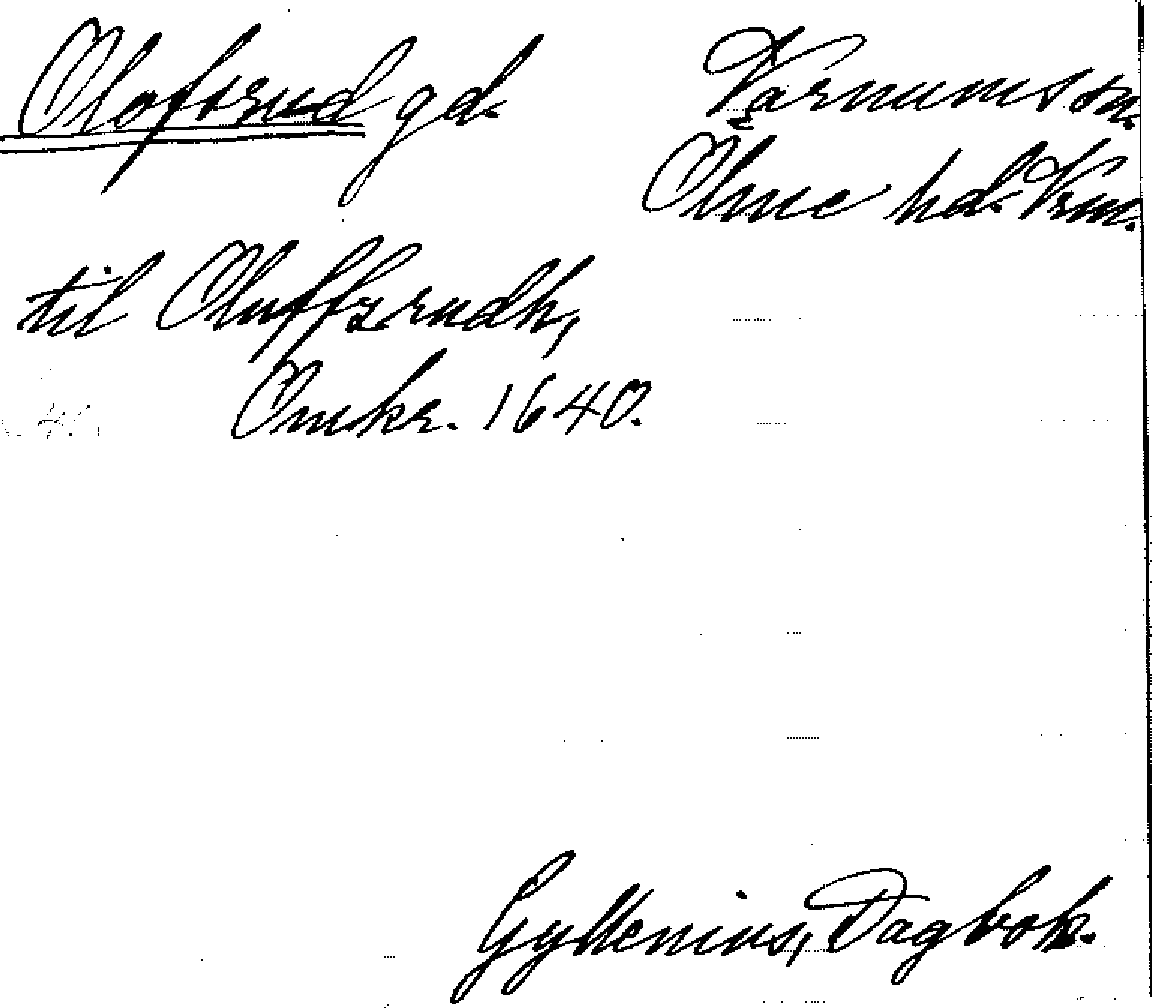 Olofsrud gd.
Varnums sn.
Ölme hd. Vrm.
til Oluffzrudh,
Omkr. 1640.
Gyllenius, Dagbok.